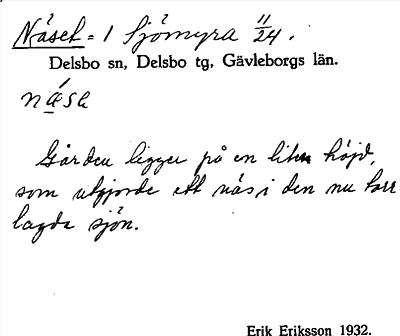 Näset = 1 Sjömyra 11/24.
Delsbo sn, Delsbo tg, Gävleborgs län.
näse
Gården ligger på en liten höjd,
som utgjorde ett näs i den nu torr
lagda sjön.
Erik Eriksson 1932.